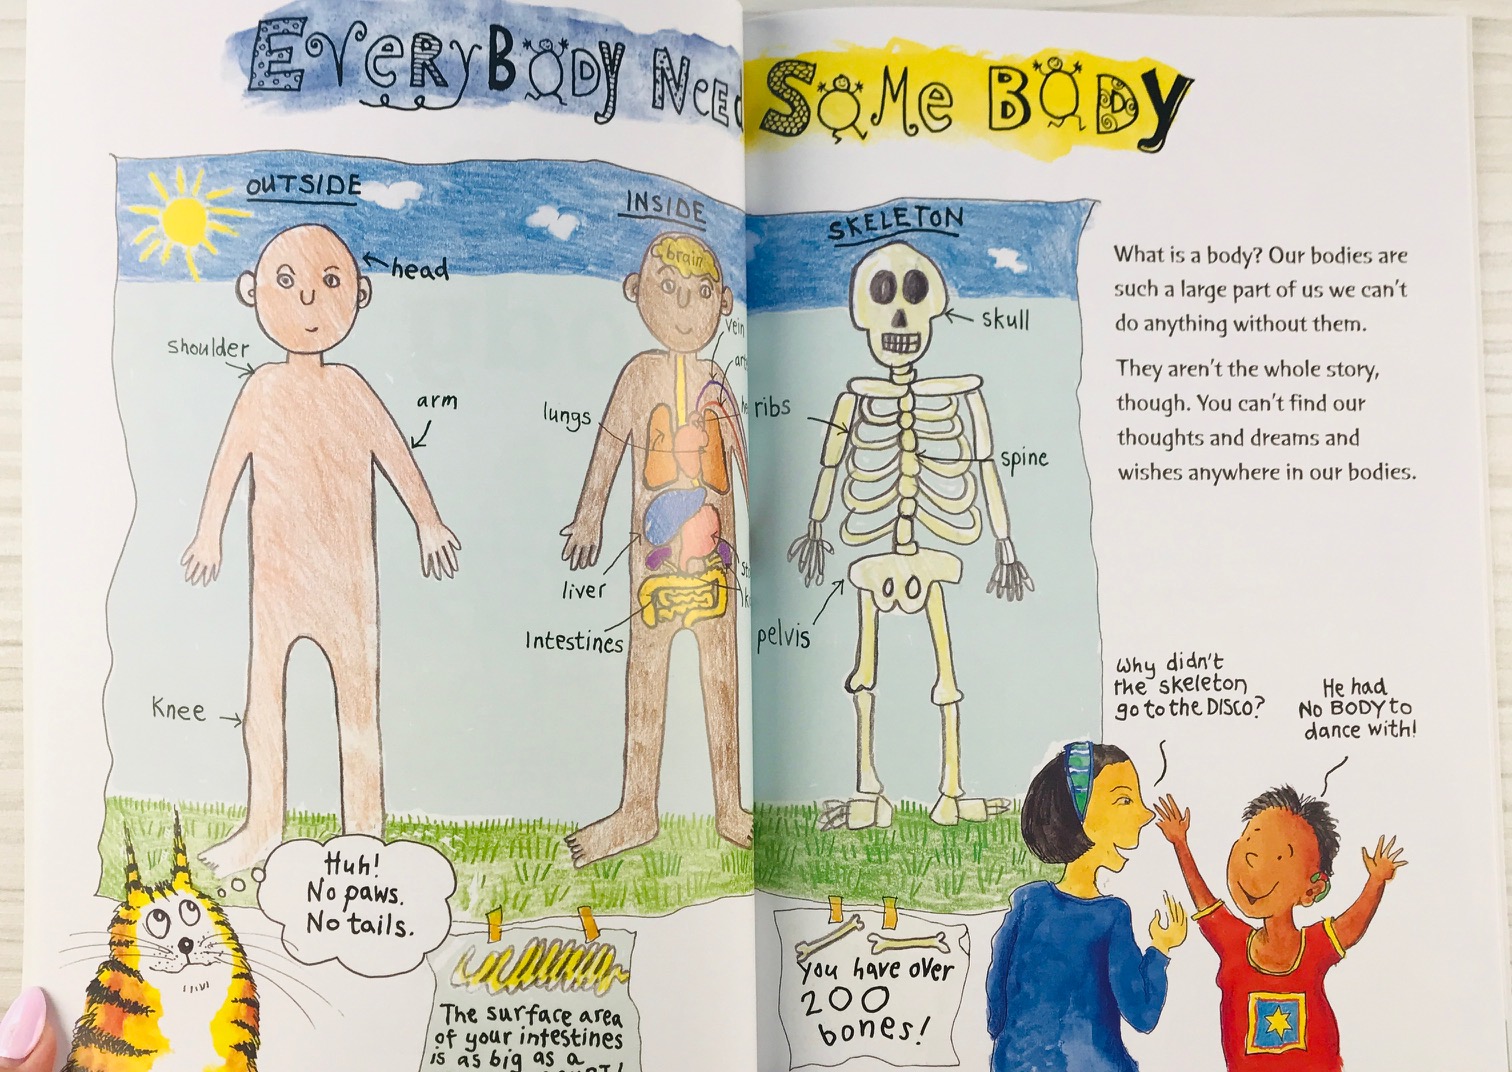 EVERYBODY
SOME BODY
OUTSIDE
head
shoulder
arm
Knee
INSIDE
brain
vein
lungs
liver
Intestines
SKELETON
skull
ribs
spine
pelvis
What is a body? Our bodies are
such a large part of us we can't
do anything without them.
They aren't the whole story,
though. You can't find our
thoughts and dreams and
wishes anywhere in our bodies.
Why didn't
the skeleton
go to the DISCO?
He had
No BODY to
dance with!
Huh!
No paws.
No tails.
The surface area
of your intestines
is as big as a
you have over
200
bones!